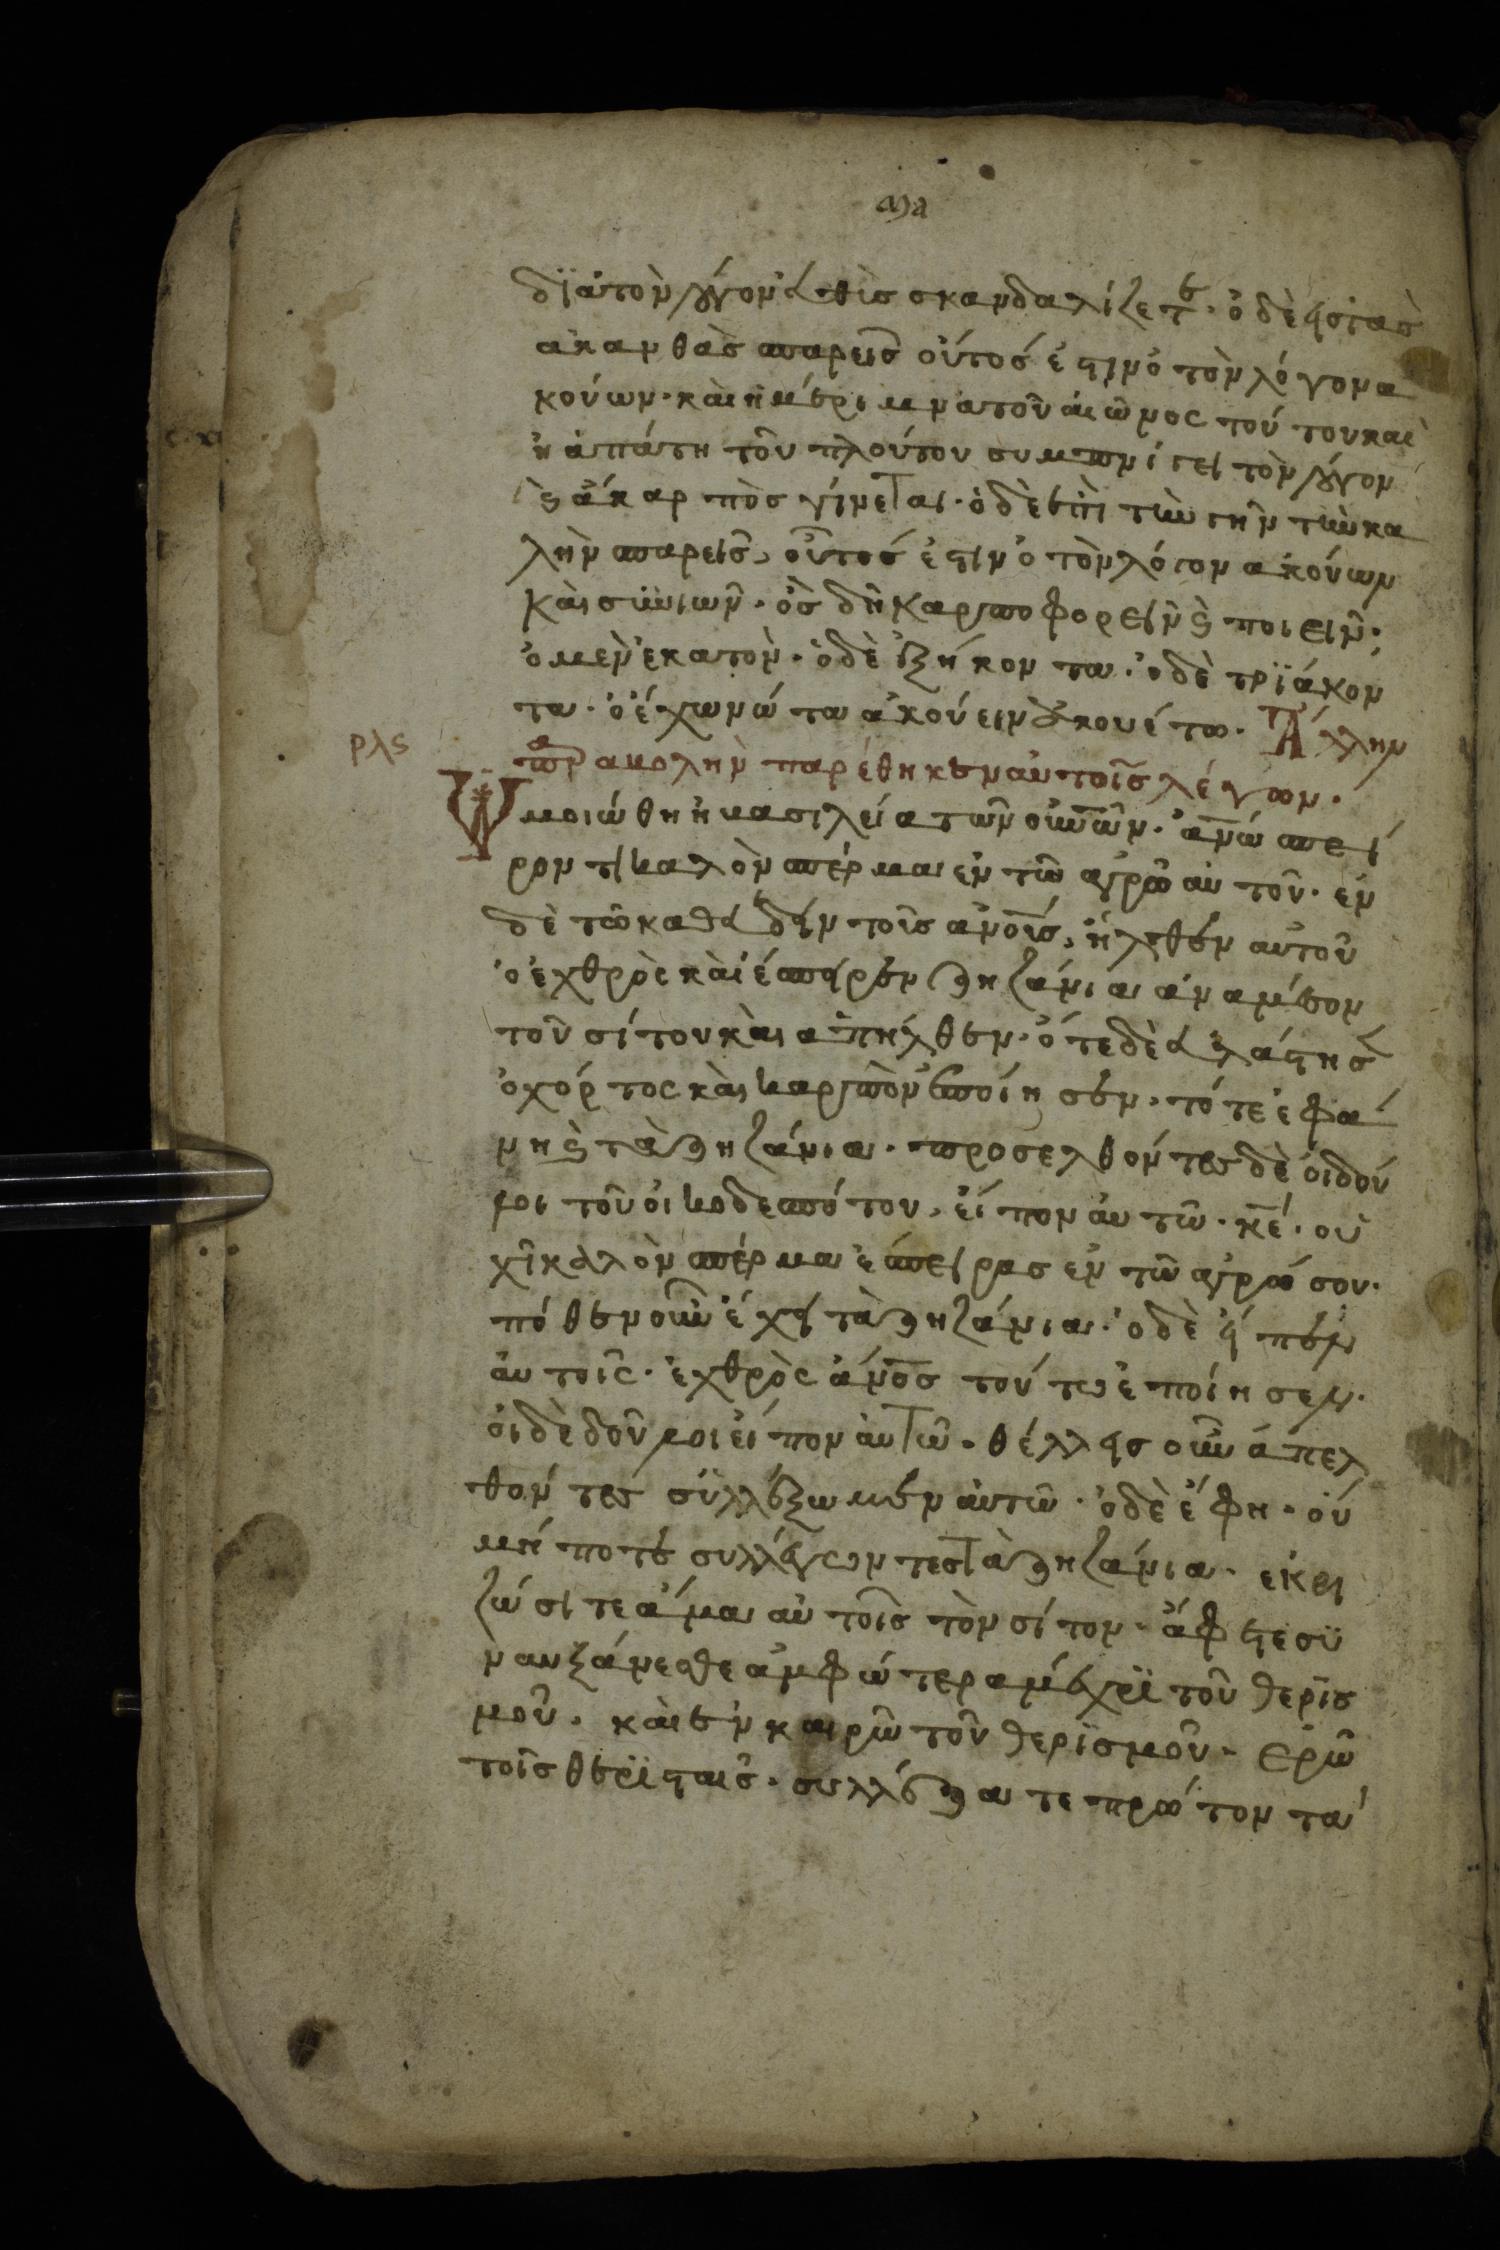 διὰ τὸν λόγον εὐθὺς σκανδαλίζεται· ὁ δὲ εἰς τὰς
ἀκάνθας σπαρεὶς οὗτός ἐστιν ὁ τὸν λόγον α
κούων· καὶ ἡ μέριμνα τοῦ αἰῶνος τούτου καὶ
ἡ ἀπάτη τοῦ πλούτου συμπνίγει τὸν λόγον
καὶ ἄκαρπος γίνεται· ὁ δὲ ἐπὶ τὴν γῆν τὴν κα
λὴν σπαρεὶς, οὗτός ἐστιν ὁ τὸν λόγον ἀκούων
καὶ συνιῶν· ὃς δὴ καρποφορεῖν καὶ ποιεῖν·
ὁ μὲν ἑκατὸν· ὁ δὲ ἑξήκοντα· ὁ δὲ τριάκον
τα· ὁ ἔχων ὦτα ἀκούειν ἀκουέτω· Ἄλλην
ρλς παραβολὴν παρέθηκεν αὐτοῖς λέγων·
Ὡμοιώθη ἡ βασιλεία τῶν οὐνῶν· ἀνῶ σπεί
ροντι καλὸν σπέρμα ἐν τῶ ἀγρῶ αὐτοῦ· ἐν
δὲ τῶ καθεύδειν τοῖς ἀνοις, ἦλθεν αὐτοῦ
ὁ ἐχθρὸς καὶ ἔσπειρεν ζηζάνια ἀναμέσον
τοῦ σίτου καὶ ἀπῆλθεν· ὅτε δὲ ἐβλάστησεν
ὁ χόρτος καὶ καρπὸν ἐποίησεν· τότε ἐφά
νη καὶ τὰ ζηζάνια· προσελθόντες δὲ οἱ δού
λοι τοῦ οἰκοδεσπότου, εἶπον αὐτῶ· κε· οὐ
χὶ καλὸν σπέρμα ἔσπειρας ἐν τῶ ἀγρῶ σου·
πόθεν οὖν ἔχει τὰ ζηζάνια· ὁ δὲ εἶπεν
αὐτοῖς· ἐχθρὸς ἄνος τούτω ἐποίησεν·
οἱ δὲ δοῦλοι εἶπον αὐτῶ· θέλλεις οὖν ἀπελ
θόντες συλλέξωμεν αὐτῶ· ὁ δὲ ἔφη· οὐ
μήποτε συλλέγωντες τὰ ζηζάνια· ἐκρι
ζώσιτε ἅμα αὐτοῖς τὸν σίτον· ἄφετε συ
ναυξάνεσθε ἀμφώτερα μέχρι τοῦ θερισ
μοῦ· καὶ ἐν καιρῶ τοῦ θερισμοῦ· ἐρῶ
τοῖς θερισταῖς· συλλέξατε πρῶτον τὰ